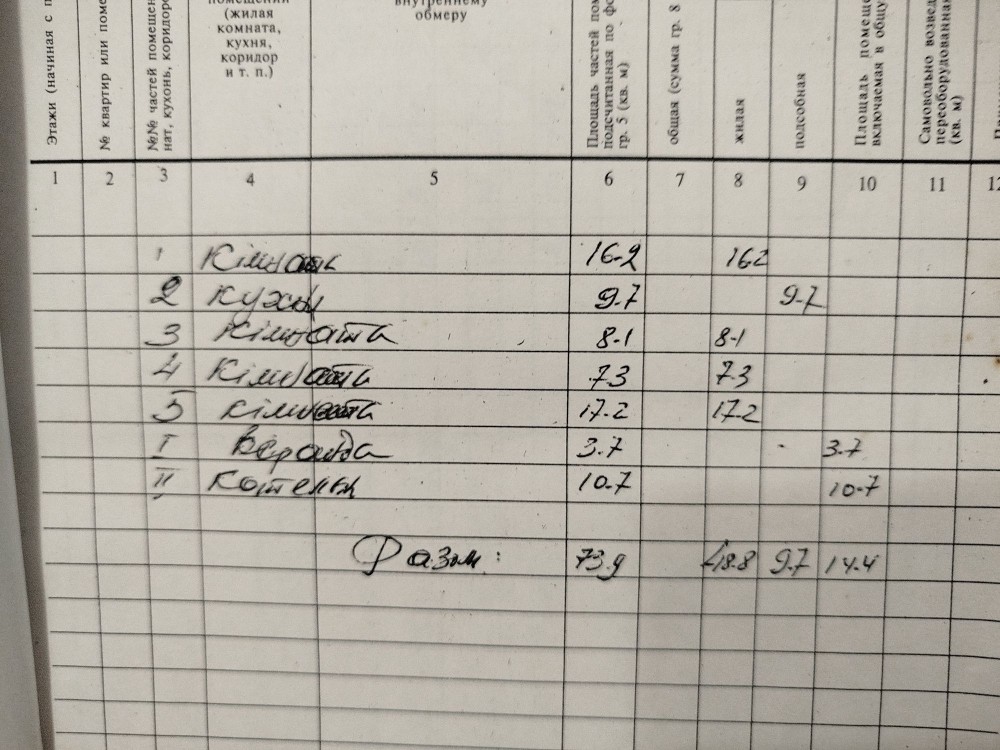 Этажи (начиная с п
№ квартир или поме
№№ частей помещен
нат, кухонь, коридоро
помещений
(жилая
комната,
кухня,
коридор
и т. п.)
внутреннему
обмеру
Площадь частей пом
подсчитанная по фо
гр. 5 (кв. м)
общая (сумма гр. 8
жилая
подсобная
Площадь помеще
включаемая в общу
Самовольно возве
переоборудованная
(кв. м)
1 2 3 4 5 6 7 8 9 10 11 12
1 Кімната 16.2 16.2
2 Кухня 9.7 9.7
3 Кімната 8.1 8.1
4 Кімната 7.3 7.3
5 Кімната 17.2 17.2
I Веранда 3.7 3.7
II Котельн 10.7 10.7
Разом: 73.9 48.8 9.7 14.4